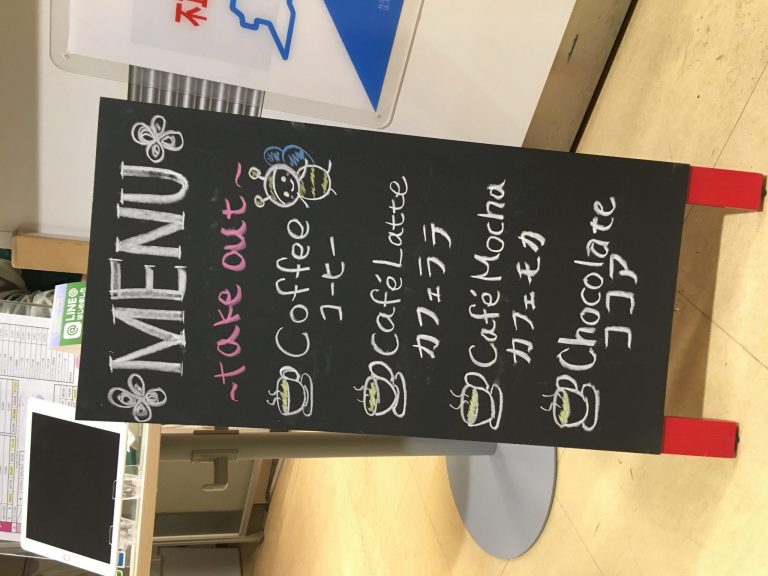 MENU
~take out~
Coffee
コーヒー
Café Latte
カフェラテ
Café Mocha
カフェモカ
Chocolate
ココア
LINE@
はじめました